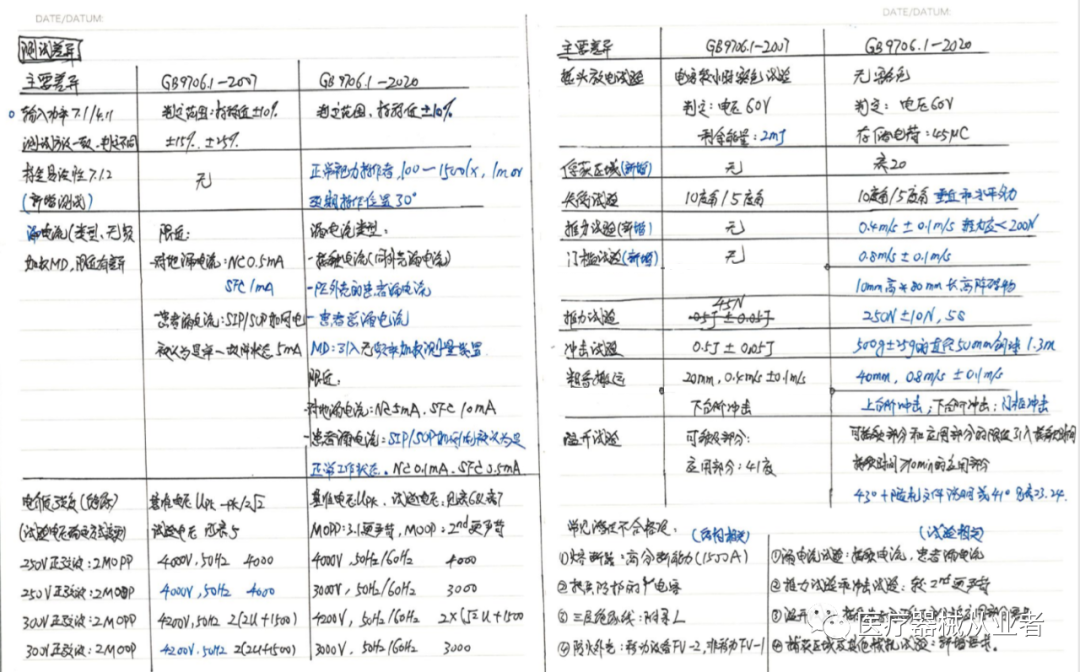 DATE/DATUM:
测试差异
主要差异 GB9706.1-2007 GB9706.1-2020
输入功率7.1/4.11 判定范围:标称值±10% 判定范围、标称值±10%
测试方法一致、判定不同 ±15%、±25%
易读性7.1.2 无 正常视力操作者,100—1500lx,1m or
(新增测试) 预期操作位置30°
漏电流(类型、无频 限近: 漏电流类型:
加权MD,限近有差异 -对地漏电流:NC 0.5mA -接触电流(同外壳漏电流)
SFC 1mA -PE外壳的患者漏电流
-患者漏电流:SIP/SOP加网电 -患者总漏电流
被认为是单一故障状态5mA MD:引入无频率加权测量装置
限近:
-对地漏电流:NC 5mA、SFC 10mA
-患者漏电流:SIP/SOP 被认为是
正常工作状态。NC 0.1mA、SFC 0.5mA
电介质强度 基准电压UPK -PK/2√2 基准电压UPK、试验电压:见表6或表7
试验电压 见表5 MOPP:3.1更严苛,MOOP:2nd更严苛
250V正弦波:2MOPP 4000V,50Hz 4000 4000V,50Hz/60Hz 4000
250V正弦波:2MOOP 4000V,50Hz 4000 3000V,50Hz/60Hz 3000
300V正弦波:2MOPP 4200V,50Hz 2(2U+1500) 4200V,50Hz/60Hz 2×(√2U+1500
300V正弦波:2MOOP 4200V,50Hz 2(2U+1500) 3000V,50Hz/60Hz 3000
DATE/DATUM:
主要差异 GB9706.1-2007 GB9706.1-2020
插头放电试验 无
判定:电压60V 判定:电压60V
剩余能量:2mJ 存储电荷:45μC
俘获区域(新增) 无 表20
失衡试验 10度角/5度角 10度角/5度角 垂直和水平力
推力试验(新增) 无 0.4m/s±0.1m/s 推力应<200N
门槛试验(新增) 无 0.8m/s±0.1m/s
10mm高*80mm长高障碍物
45N
推力试验 0.5J±0.05J 250N±10N,5S
冲击试验 0.5J±0.05J 500g±25g的直径50mm钢球1.3m
粗鲁搬运 20mm,0.4m/s±0.1m/s 40mm,0.8m/s±0.1m/s
下台阶冲击 上台阶冲击;下台阶冲击;门框冲击
温升试验 可触及部分: 可触及部分和应用部分的限值引入接触时间
应用部分:41度 接触时间≥10min的应用部分
43°+随机文件说明或41° 见表23.24.
常见测试不合格项: (结构相关) (试验相关)
①熔断器:高分断能力(1500A) ①漏电流试验:接触电流,患者漏电流
②按 防护的Y电容 ②推力试验和冲击试验:较2nd更严苛
③三层绝缘线:附录L ③温升
④防火外壳:移动设备FV-2,非移动FV-1 ④俘获区域及其他机械试验:新增要求。
医疗器械从业者